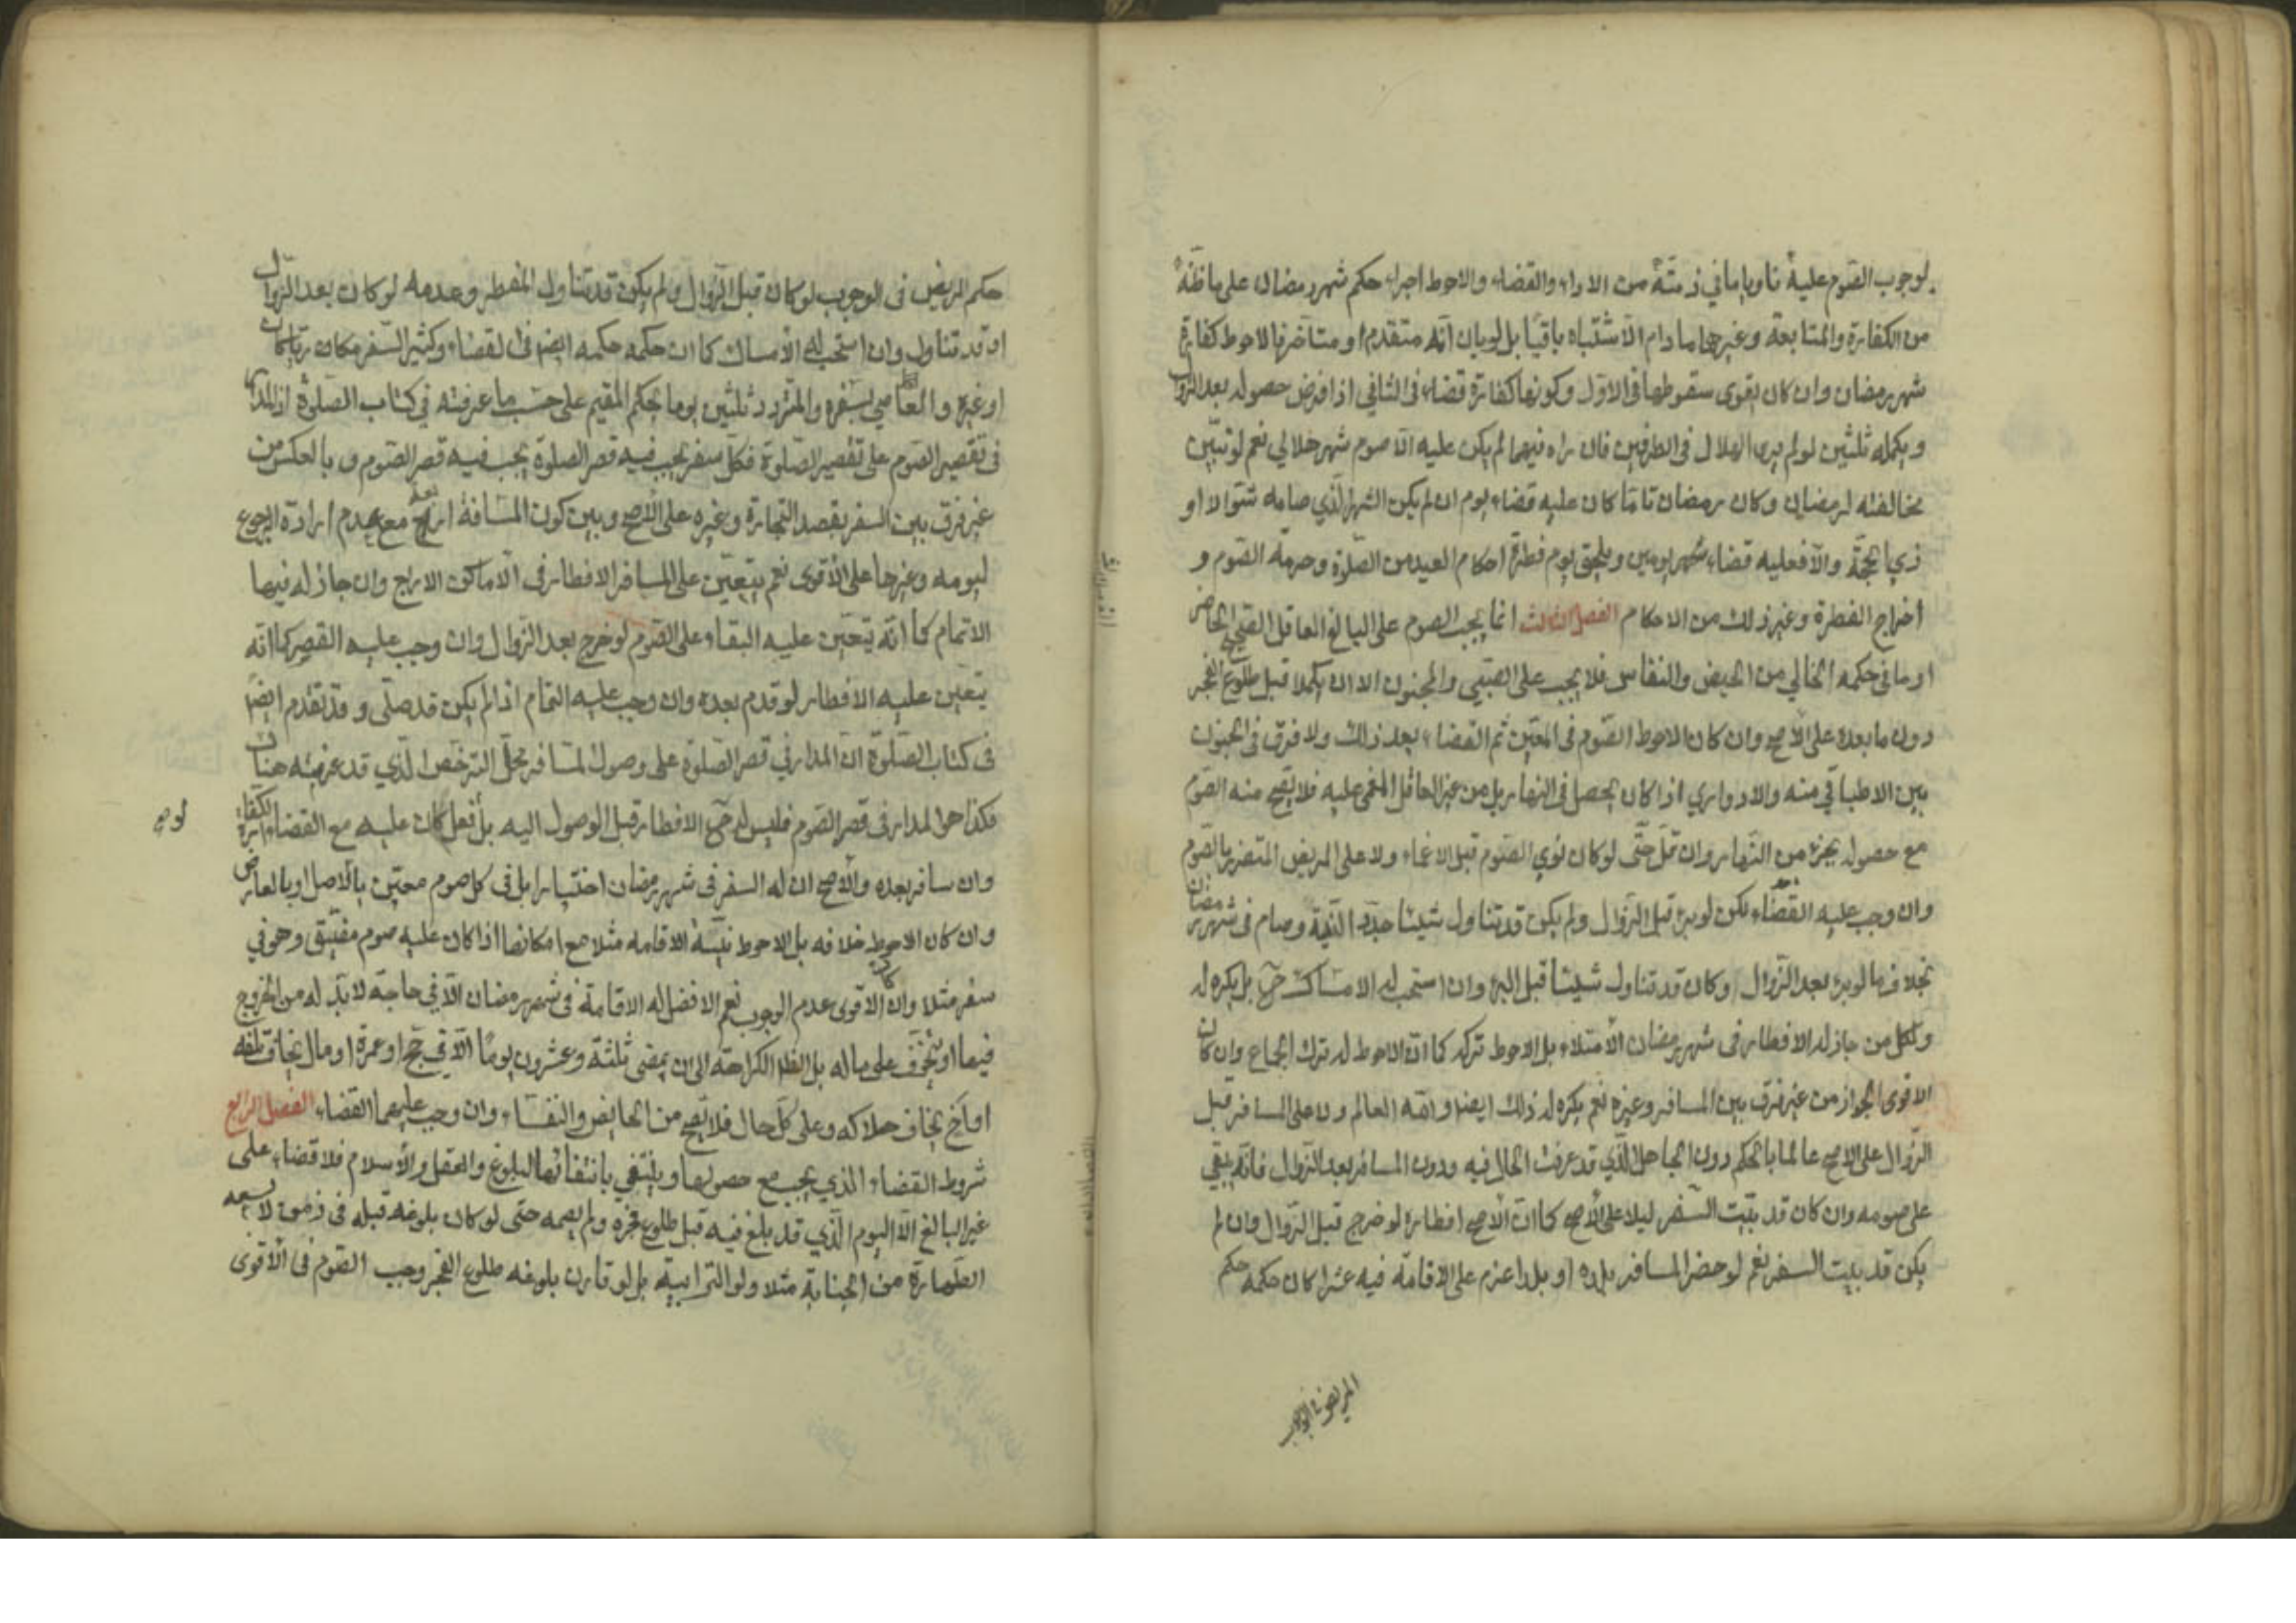 لوجوب الصوم عليه ناويا ما في ذمته من الاداء والقضاء والاحوط اجراء حكم شهر رمضان على ما ظنه
من الكفارة والمتابعة وغيرها مادام الاشتباه باقيا بل لو بان انه متقدم او متأخر فالاحوط كفارة
شهر رمضان وان كان يقوى سقوطها في الاول وكونها كفارة قضاء في الثاني اذا فرض حصوله بعد الزوال
ويكمله ثلثين لو لم يرى الهلال في الطرفين فان راه فيهما لم يكن عليه الا صوم شهر هلالي نعم لو تبين
مخالفته لرمضان وكان رمضان تاما كان عليه قضاء يوم ان لم يكن الشهر الذي صامه شوالا او
ذي الحجة والا فعليه قضاء يومين ويلحق يوم فطره احكام العيد من الصلوة وحرمة الصوم و
اخراج الفطرة وغير ذلك من الاحكام الفصل الثالث انما يجب الصوم على البالغ العاقل الصحيح الحاضر
او ما في حكمه الخالي من الحيض والنفاس فلا يجب على الصبي والمجنون الا ان يكملا قبل طلوع الفجر
دون ما بعده على الاصح وان كان الاحوط الصوم في المعين ثم القضاء بعد ذلك ولا فرق في الجنون
بين الاطباقي منه والادواري اذا كان يحصل في النهار بل من غير العاقل المغمى عليه فلا يصح منه الصوم
مع حصوله بجزء من النهار وان قل حتى لو كان نوى الصوم قبل الاغماء ولا على المريض المتضرر بالصوم
وان وجب عليه القضاء لكن لو برئ قبل الزوال ولم يكن قد تناول شيئا جدد النية وصام في شهر رمضان
بخلاف ما لو برئ بعد الزوال او كان قد تناول شيئا قبل البرء وان استحب له الامساك ح بل يكره له
ولكل من جاز له الافطار في شهر رمضان الامتلاء بل الاحوط تركه كما ان الاحوط له ترك الجماع وان كان
الاقوى الجواز من غير فرق بين المسافر وغيره نعم يكره له ذلك ايضا والله العالم ولا على المسافر قبل
الزوال على الاصح عالما بالحكم دون الجاهل الذي قد عرفت الحال فيه ودون المسافر بعد الزوال فانه يبقى
على صومه وان كان قد بيت السفر ليلا على الاصح كما ان الاصح افطاره لو خرج قبل الزوال وان لم
يكن قد بيت السفر نعم لو حضر المسافر بلده او بلدا عزم على الاقامة فيه عشرا كان حكمه حكم
المريض في الوجوب
حكم المريض في الوجوب لو كان قبل الزوال ولم يكن قد تناول المفطر وعدمه لو كان بعد الزوال
او قد تناول وان استحب له الامساك كما ان حكمه حكمه ايضا في القضاء وكثير السفر مكاريا كان
او غيره والعاصي بسفره والمتردد ثلثين يوما بحكم المقيم على حسب ما عرفته في كتاب الصلوة اذ المدار
في تقصير الصوم على تقصير الصلوة فكل سفر يجب فيه قصر الصلوة يجب فيه قصر الصوم وبالعكس من
غير فرق بين السفر بقصد التجارة وغيره على الاصح وبين كون المسافة اربعة مع عدم ارادة الرجوع
ليومه وغيرها على الاقوى نعم يتعين على المسافر الافطار في الاماكن الاربع وان جاز له فيها
الاتمام كما انه يتعين عليه البقاء على الصوم لو خرج بعد الزوال وان وجب عليه القصر كما انه
يتعين عليه الافطار لو قدم بعده وان وجب عليه التمام اذا لم يكن قد صلى وقد تقدم ايضا
في كتاب الصلوة ان المدار في قصر الصلوة على وصول المسافر محل الترخص الذي قد عرفته هناك
فكذا هو المدار في قصر الصوم فليس له ح الافطار قبل الوصول اليه بل لو فعل كان عليه مع القضاء الكفارة
وان سافر بعده والاصح ان له السفر في شهر رمضان اختيارا بل في كل صوم معين بالاصل او بالعارض
وان كان الاحوط خلافه بل الاحوط نية الاقامة مثلا مع امكانها اذا كان عليه صوم مضيق وهو في
سفر مثلا وان كان الاقوى عدم الوجوب نعم الافضل له الاقامة في شهر رمضان الا في حاجة لا بد له من الخروج
فيها او يتخوف على ماله بل الكراهة الى ان يمضى ثلثة وعشرون يوما الا في حج او عمرة او مال يخاف تلفه
او اخ يخاف هلاكه وعلى كل حال فلا يصح من الحائض والنفساء وان وجب عليهما القضاء الفصل الرابع
شروط القضاء الذي يجب مع حصولها وينتفي بانتفائها البلوغ والعقل والاسلام فلا قضاء على
غير البالغ الا اليوم الذي قد بلغ فيه قبل طلوع فجره ولم يصمه حتى لو كان بلوغه قبله في زمن لا يسعه
الطهارة من الجنابة مثلا ولو الترابية بل لو قارن بلوغه طلوع الفجر وجب الصوم في الاقوى